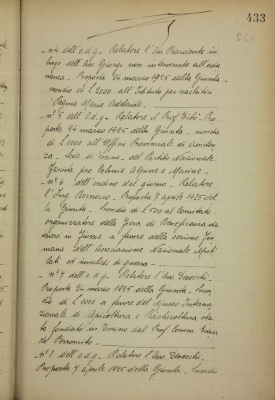 433
- n. 4 dell'o.d.g. - Relatore l'On. Presidente in
luogo dell'Avv. Giorgi non intervenuto all'adu
nanza - Proposta 24 marzo 1925 della Giunta -
sussidio di L. 2000 all'Istituto pei rachitici
Regina Maria Adelaide. -
- n° 5 dell'o.d.g. - Relatore il Prof. Pro
posta 24 marzo 1925 della Giunta - sussidio
di L. 1000 all'Ufficio Provinciale di Assisten
za - Sede di Torino - del Partito Nazionale
Fascista pro Colonie Alpine e Marine. -
- n° 6 dell'ordine del giorno - Relatore
l'Ing. Bernocco - Proposta 7 aprile 1925 del
la Giunta - Sussidio di L. 500 al Comitato
organizzatore della Fiera di Beneficenza da
tenersi in Fiume a favore della sezione Fiu
mana dell'Associazione Nazionale Muti
lati ed invalidi di guerra -
- n° 7 dell'o.d.g. - Relatore l'Avv.
Proposta 24 marzo 1925 della Giunta - Sussi
dio di L. 1000 a favore del Museo Interna
zionale di Apicoltura e Bachicoltura sta
to fondato in Torino dal Prof. Comm.
de Perroncito -
n° 8 dell'o.d.g. - Relatore l'Avv.
Proposta 7 aprile 1925 della Giunta - Sussidio